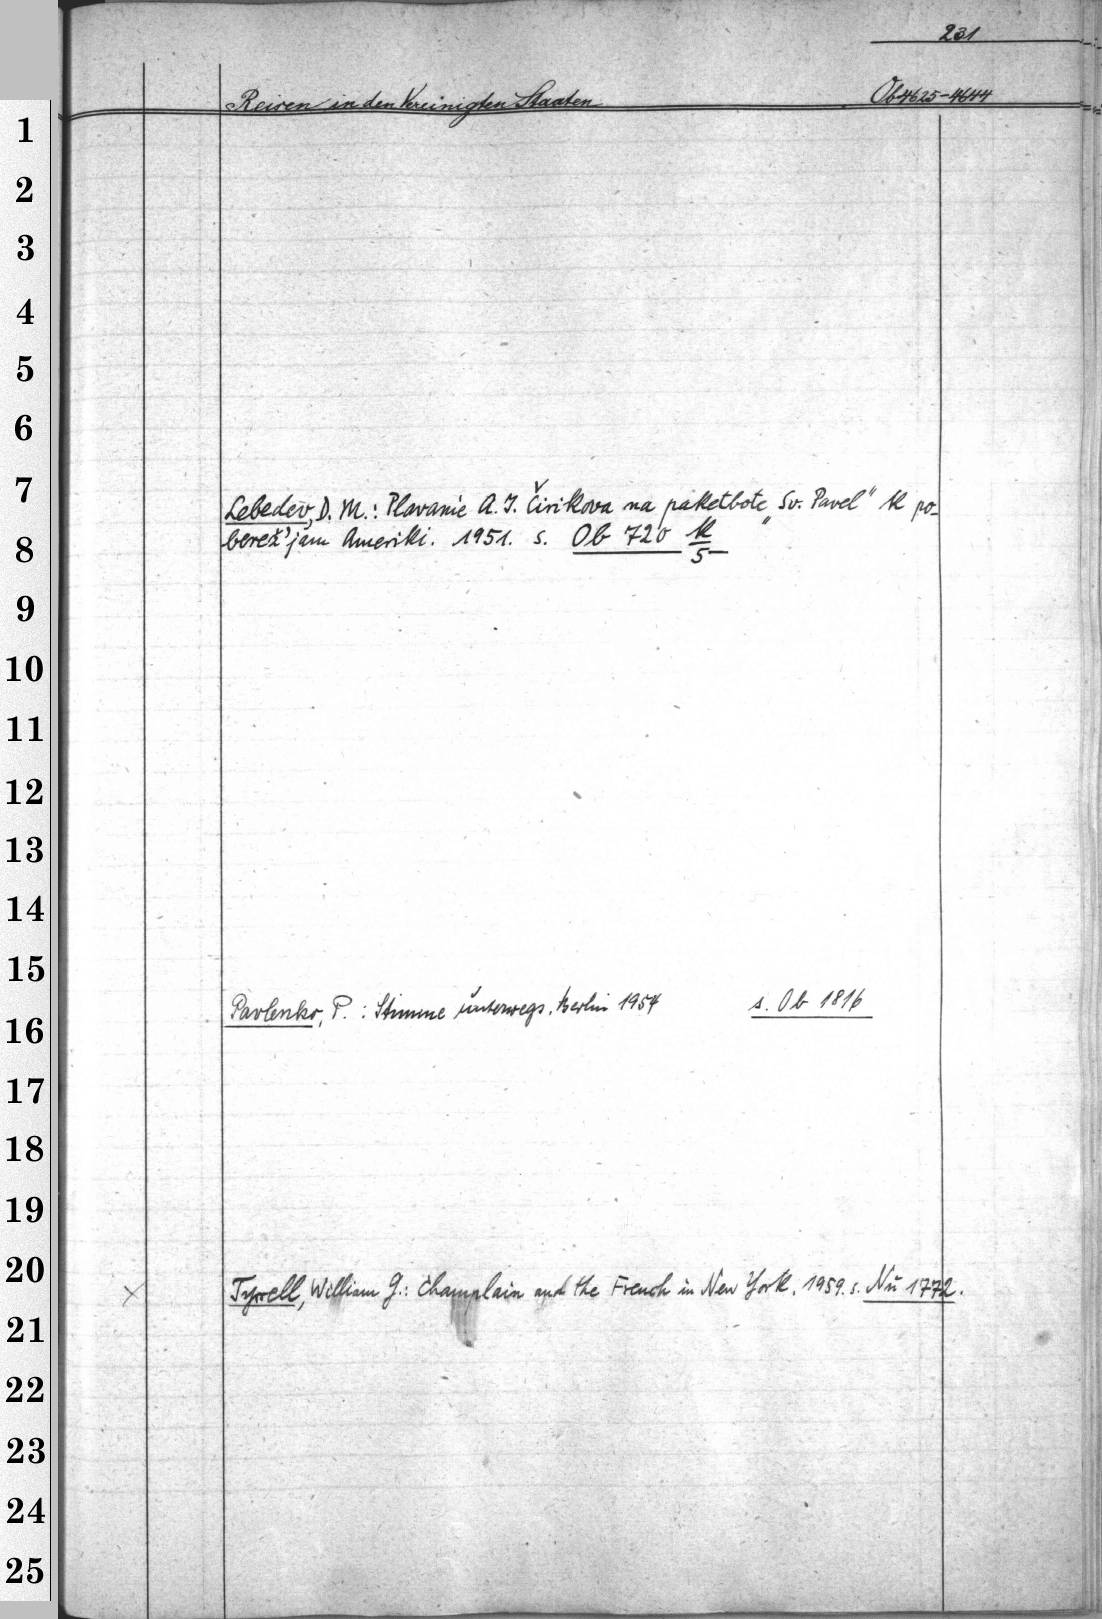 231
Reisen in den Vereinigten Staaten Ob 4625-4644
1
2
3
4
5
6
7
Lebedev, D. M.: Plavanie A. I. Čirikova na paketbote „Sv. Pavel“ k po-
8
berež'jam Ameriki. 1951. s. Ob 720 k/5
9
10
11
12
13
14
15
Pavlenko, P.: Stimme unterwegs. Berlin 1954 s. Ob 1816
16
17
18
19
20
× Tyrrell, William G.: Champlain and the French in New York. 1959. s. Nu 1772.
21
22
23
24
25